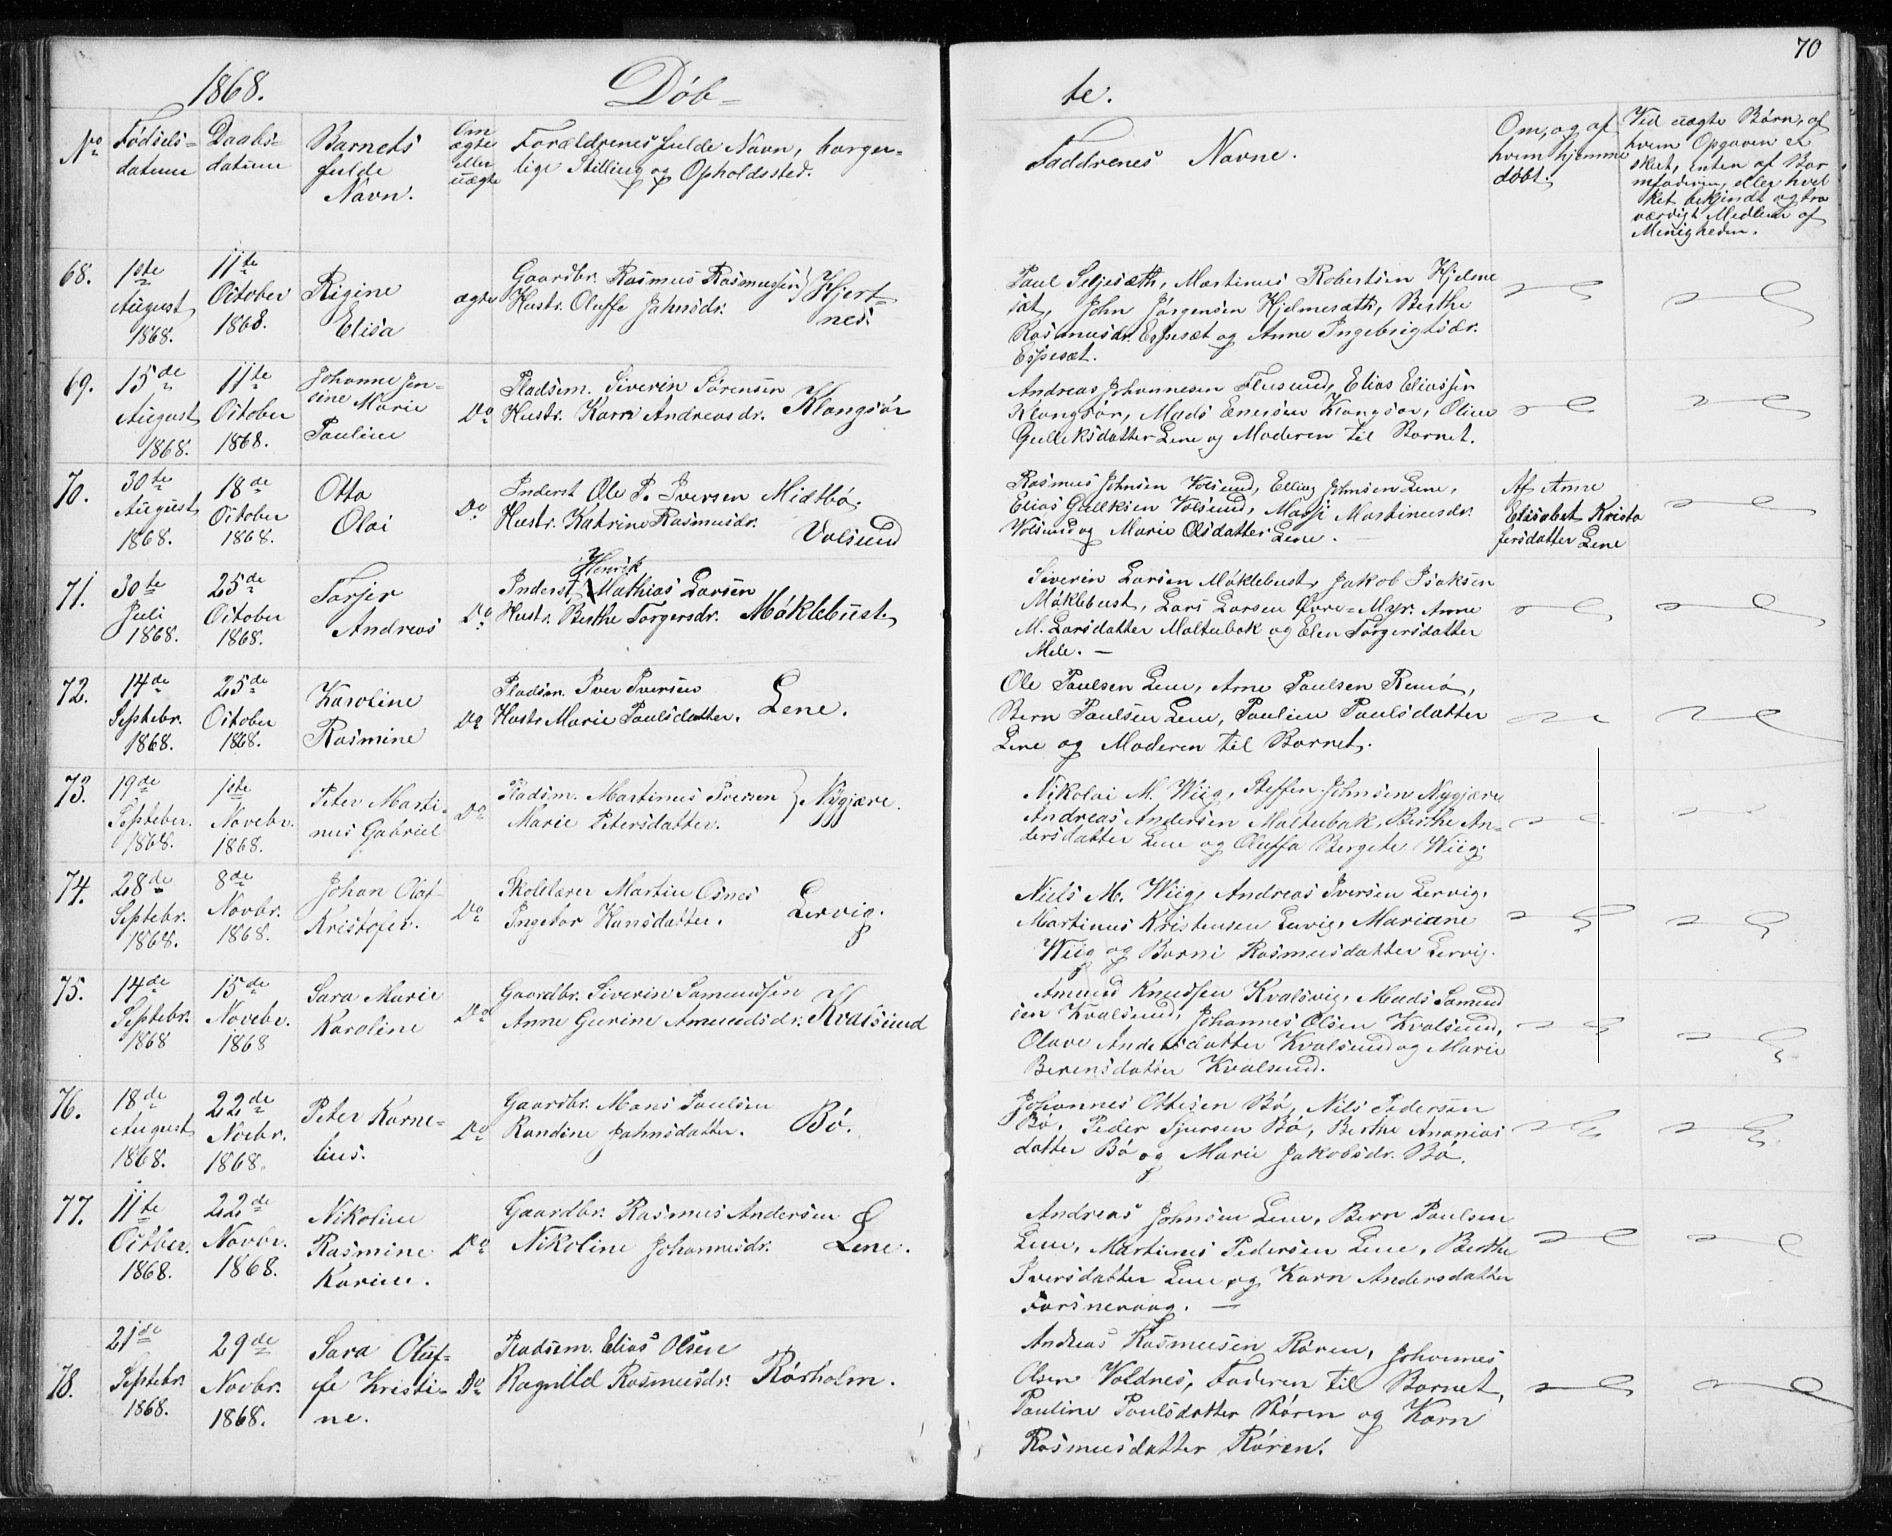 70
1868. Døb= te.
No. Fødsels= datum
Daabs= datum
Barnets fulde Navn.
Om ægte eller uægte
Forældrenes fulde Navn, borger=
lige Stilling og Opholdssted.
Faddrenes Navne.
Om, og af
hvem hjemme
døbt.
Ved uægte Børn, af
hvem Opgaven er
skeet, enten af Bar
nefaderen, eller hvil
ket bekjendt og tro
værdigt Medlem af
Menigheden.
68. 1ste August 1868.
11te October 1868.
Rigine
Elisa
ægte
Gaardbr. Rasmus Rasmussen } Hjert=
Hustr. Oluffe Jahnsdr. nes.
Paul Seljesæth, Martinus Robertsen Hjelme
sæt, John Jørgensen Hjelmesæth, Berthe
Rasmusdr. Espesæt og Anne Ingebrigtsdr.
Espesæt.
69. 15de August 1868.
11te October 1868.
Johanne Jen=
sine Marie
Pauline
Do
Pladsm. Siverin Sørensen
Hustr. Karn Andreasdr. Klongsør
Andreas Johannesen Flusund, Elias Eliassen
Klongsør, Mads Enersen Klongsør, Oline
Gulleksdatter Lene og Moderen til Barnet.
70. 30te August 1868.
18de October 1868.
Otto
Olai
Do
Inderst Ole P. Iversen Midtbø,
Hustr. Katrine Rasmusdr. Volsund
Rasmus Johnsen Volsund, Elling Johnsen Lene,
Elias Gulleksen Volsund, Massi Martinusdr.
Volsund og Marie Olsdatter Lene.
Af Anne
Elisabet Kristo
fersdatter Lene
71. 30te Juli 1868.
25de October 1868.
Torjer
Andreas
Do
Henrik
Inderst Mathias Larsen
Hustr. Berthe Torgersdr. Møklebust
Siverin Larsen Møklebust, Jakob Isaksen
Møklebust, Lars Larsen Øvre=Myr. Anne
M. Larsdatter Moltubak og Elen Torgersdatter
Mele. —
72. 14de Septebr. 1868.
25de October 1868.
Karoline
Rasmine
Do
Pladsm. Iver Iversen
Hustr. Marie Paulsdatter. Lene.
Ole Paulsen Lene, Arne Paulsen Remø,
Bern Paulsen Lene, Pauline Paulsdatter
Lene og Moderen til Barnet.
73. 19de Septeber. 1868.
1ste Novebr. 1868.
Peter Marti=
nus Gabriel
Do
Pladsm. Martinus Iversen
Marie Petersdatter. } Nygjære.
Nikolai M. Wiig, Steffen Johnsen Nygjære
Andreas Andersen Moltubak, Berthe An=
dersdatter Lene og Oluffa Bergete Wiig.
74. 28de Septebr. 1868.
8de Novbr. 1868.
Johan Olaf
Kristofer.
Do
Skolelærer Martin Osnes
Ingebor Hansdatter. Lervig.
Niels M. Wiig, Andreas Iversen Lervig.
Martinus Kristensen Lervig, Mariane
Wiig og Barni Rasmusdatter Lervig.
75. 14de Septebr. 1868
15de Novebr. 1868
Sara Marie
Karoline
Do
Gaardbr. Siverin Samundsen
Anne Gurine Amundsdr. Kvalsund
Amund Knudsen Kvalsvig, Mads Samund
sen Kvalsund, Johannes Olsen Kvalsund,
Olave Andersdatter Kvalsund og Marie
Berensdatter Kvalsund.
76. 18de August 1868.
22de Noebr. 1868.
Peter Korne=
lius.
Do
Gaardbr. Mons Paulsen
Randine Jahnsdatter. Bø.
Johannes Ottesen Bø, Nils Pedersen
Bø, Peder Sjursen Bø, Berthe Ananias
datter Bø og Marie Jakobsdr. Bø.
77. 11te Octber. 1868.
22de Novbr. 1868.
Nikoline
Rasmine
Karine.
Do
Gaardbr. Rasmus Andersen
Nikoline Johannesdr. Lene.
Andreas Johnsen Lene, Bern Paulsen
Lene, Martinus Pedersen Lene, Berthe
Iversdatter Lene og Karn Andersdatter
Torsnevaag. —
78. 21de Septebr. 1868.
29de Novbr. 1868.
Sara Oluf=
fe Kristi=
ne.
Do
Pladsem. Elias Olsen
Ragnild Rasmusdr. Rørholm.
Andreas Rasmusen Røren, Johannes
Olsen Voldnes, Faderen til Barnet,
Pauline Paulsdatter Røren og Karn
Rasmusdatter Røren.